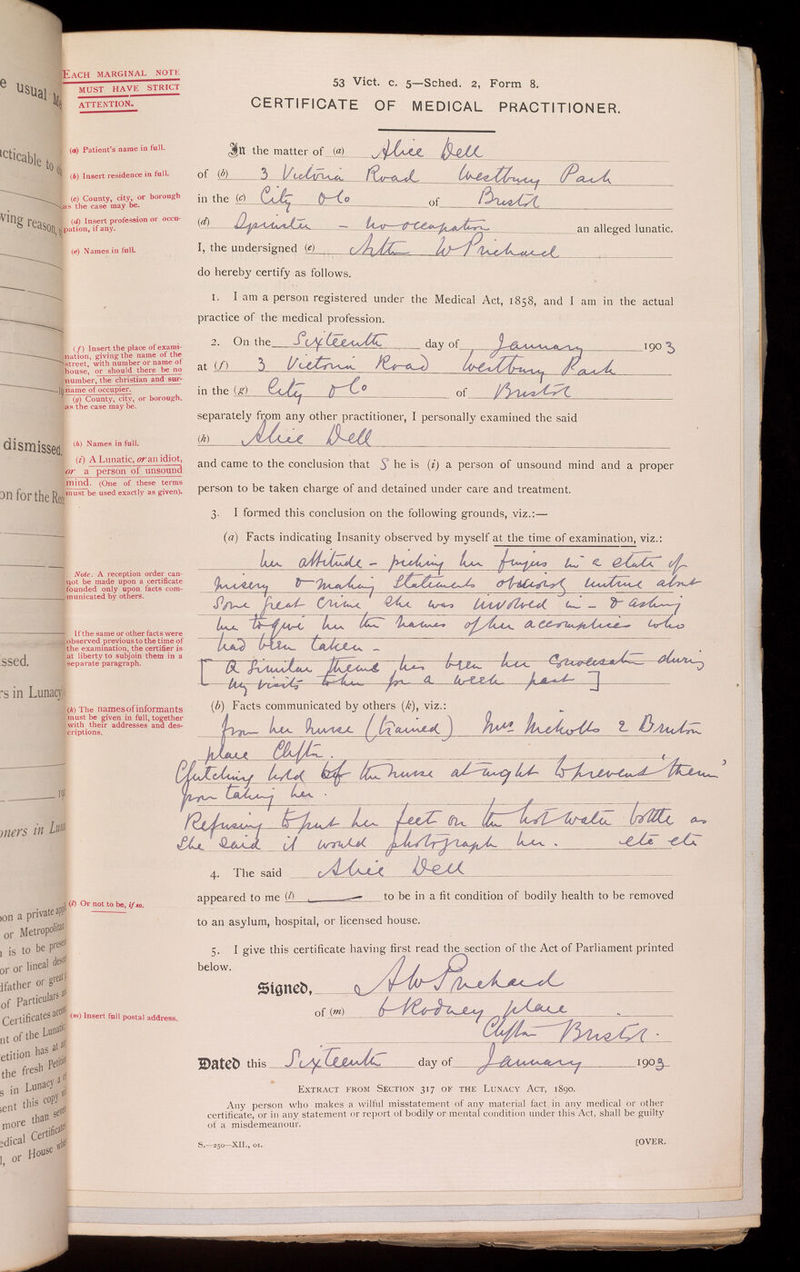 EACH MARGINAL NOTE
MUST HAVE STRICT
ATTENTION.
(a) Patient's name in full.
(b) Insert residence in full.
(c) County, city, or borough
as the case may be.
(d) Insert profession or occu-
pation, if any.
(e) Names in full.
(f) Insert the place of exami-
nation, giving the name of the
street, with number or name of
house, or should there be no
number, the christian and sur-
name of occupier.
(g) County, city, or borough,
as the case may be.
(h) Names in full.
(i) A Lunatic, or an idiot,
or a person of unsound
mind. (One of these terms
must be used exactly as given).
Note. A reception order can-
not be made upon a certificate
founded only upon facts com-
municated by others.
If the same or other facts were
observed previous to the time of
the examination, the certifier is
at liberty to subjoin them in a
separate paragraph.
(k) The names of informants
must be given in full, together
with their addresses and des-
criptions.
(l) Or not to be, if so.
(m) Insert full postal address.
53 Vict. c. 5—Sched. 2, Form 8.
CERTIFICATE OF MEDICAL PRACTITIONER.
In the matter of (a) Alice Dell
of (b) 3 Victoria Road Westbury Park
in the (c) City & Co of Bristol
(d) Spinster - no occupation an alleged lunatic.
I, the undersigned (e) W Prichard
do hereby certify as follows.
1. I am a person registered under the Medical Act, 1858, and I am in the actual
practice of the medical profession.
2. On the Sixteenth day of January 1903
at (f) 3 Victoria Road Westbury Park
in the (g) City & Co of Bristol
separately from any other practitioner, I personally examined the said
(h) Alice Dell
and came to the conclusion that S he is (i) a person of unsound mind and a proper
person to be taken charge of and detained under care and treatment.
3. I formed this conclusion on the following grounds, viz.:—
(a) Facts indicating Insanity observed by myself at the time of examination, viz.:
her attitude - picking her fingers in a state of
misery & making statements obviously untrue about
Some great crime she was involved in - & asking
me to give her the names of her accomplices who
had been taken -
[A similar theme has been her conversation during
my visits to her for a week past]
(b) Facts communicated by others (k), viz.:
from her nurse (trained) Mrs Nicholls 2 Bruton
place Clifton.
Clutching hold of the nurse at night to prevent 'them'
from taking her.
Refusing to put her feet on the hot water bottle as
she said it would photograph her. etc etc
4. The said Alice Dell
appeared to me (l) to be in a fit condition of bodily health to be removed
to an asylum, hospital, or licensed house.
5. I give this certificate having first read the section of the Act of Parliament printed
below.
Signed, A W Prichard
of (m) 6 Rodney place
Clifton Bristol.
Dated this Sixteenth day of January 1903
EXTRACT FROM SECTION 317 OF THE LUNACY ACT, 1890.
Any person who makes a wilful misstatement of any material fact in any medical or other
certificate, or in any statement or report of bodily or mental condition under this Act, shall be guilty
of a misdemeanour.
S.—250—XII., 01.
[OVER.